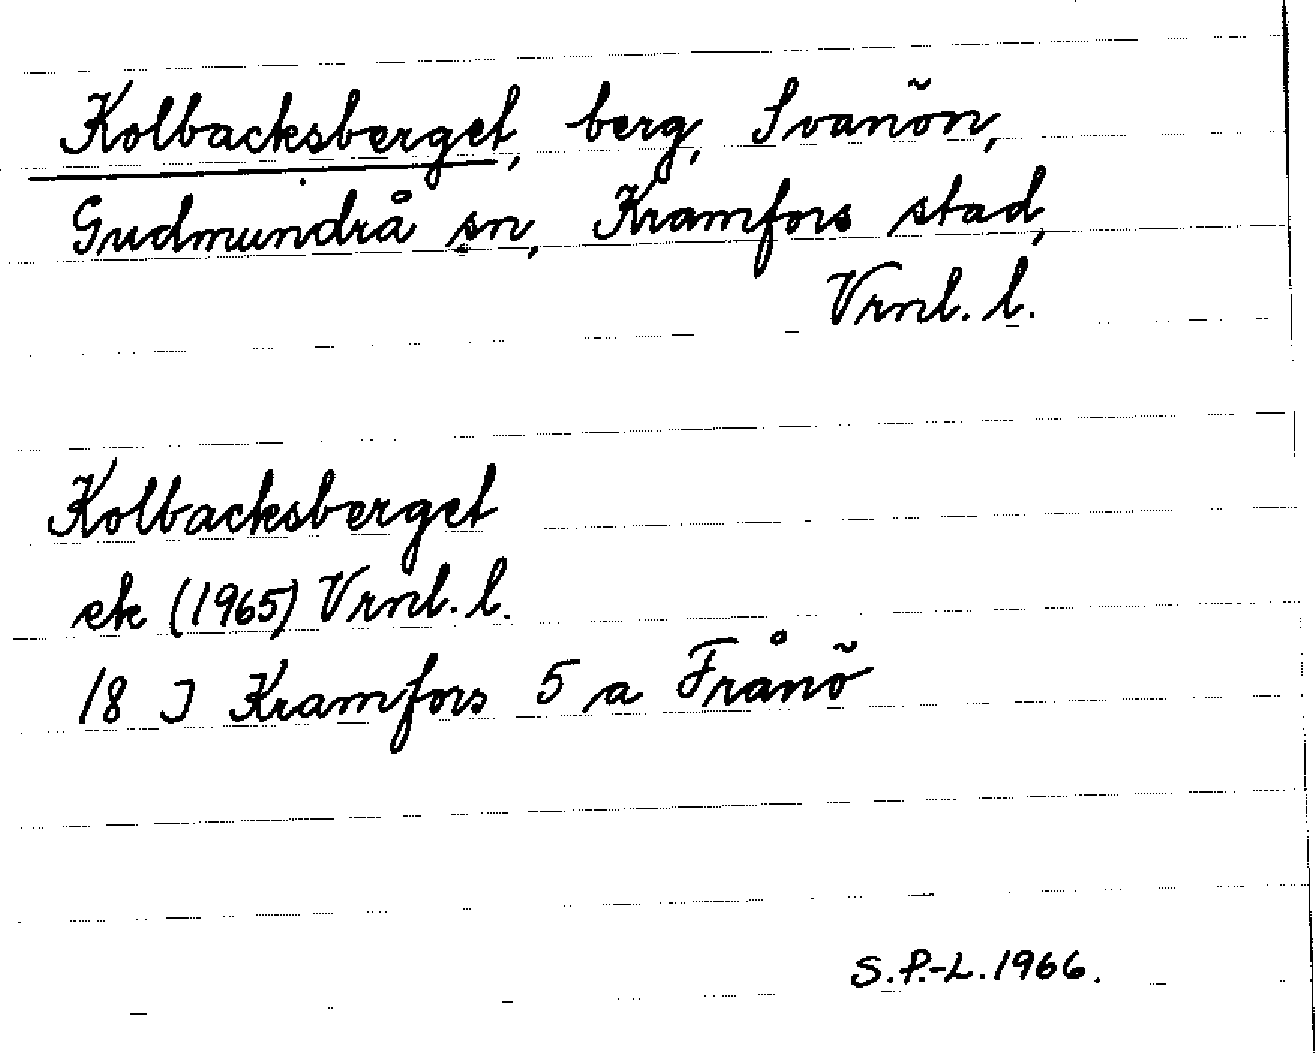 Kolbacksberget, berg, Svanön,
Gudmundrå sn, Kramfors stad,
Vrnl. l.
Kolbacksberget
ek (1965) Vrnl. l.
18 J Kramfors 5 a Frånö
S.P.-L. 1966.